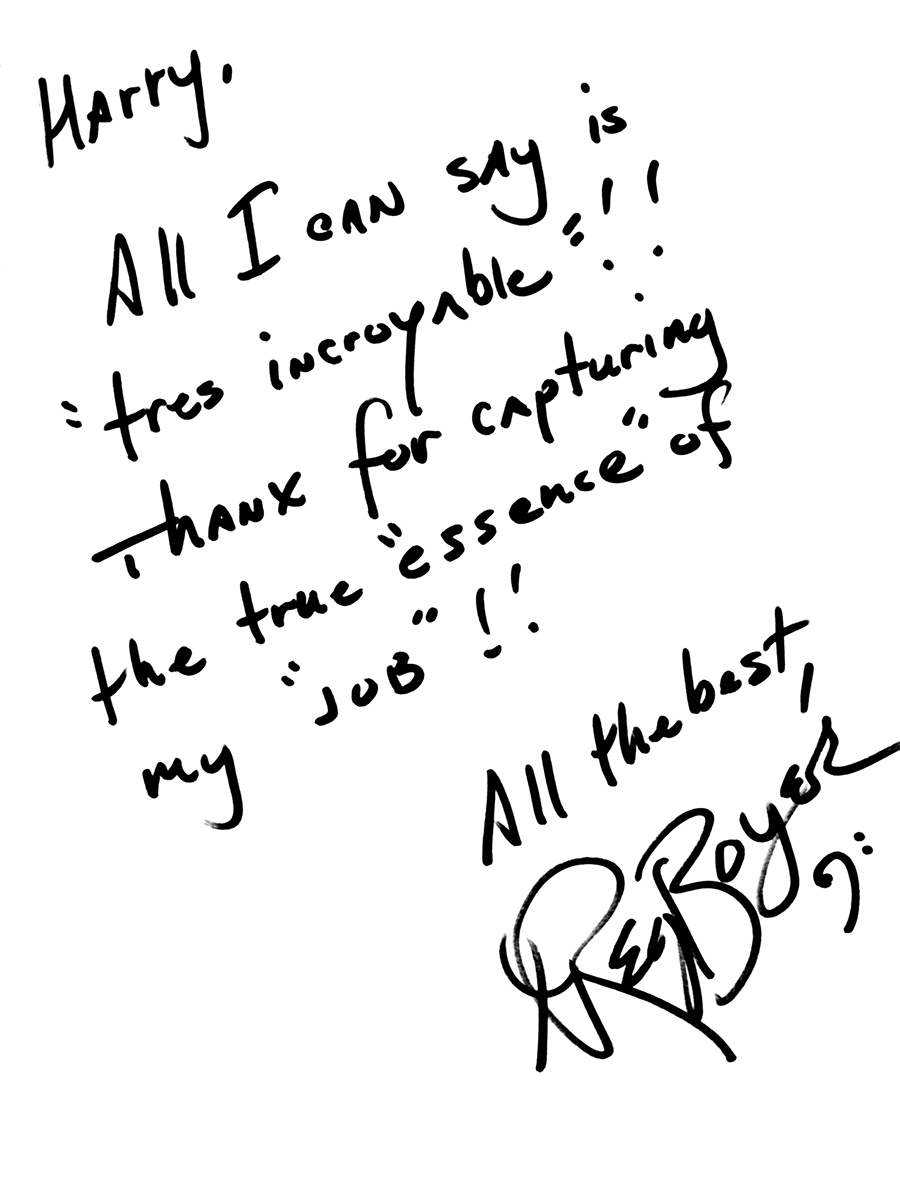 Harry,
All I can say is
"tres incroyable"!!
Thanx for capturing
the true "essence" of
my "job"!!
All the best,
Rey Boyer